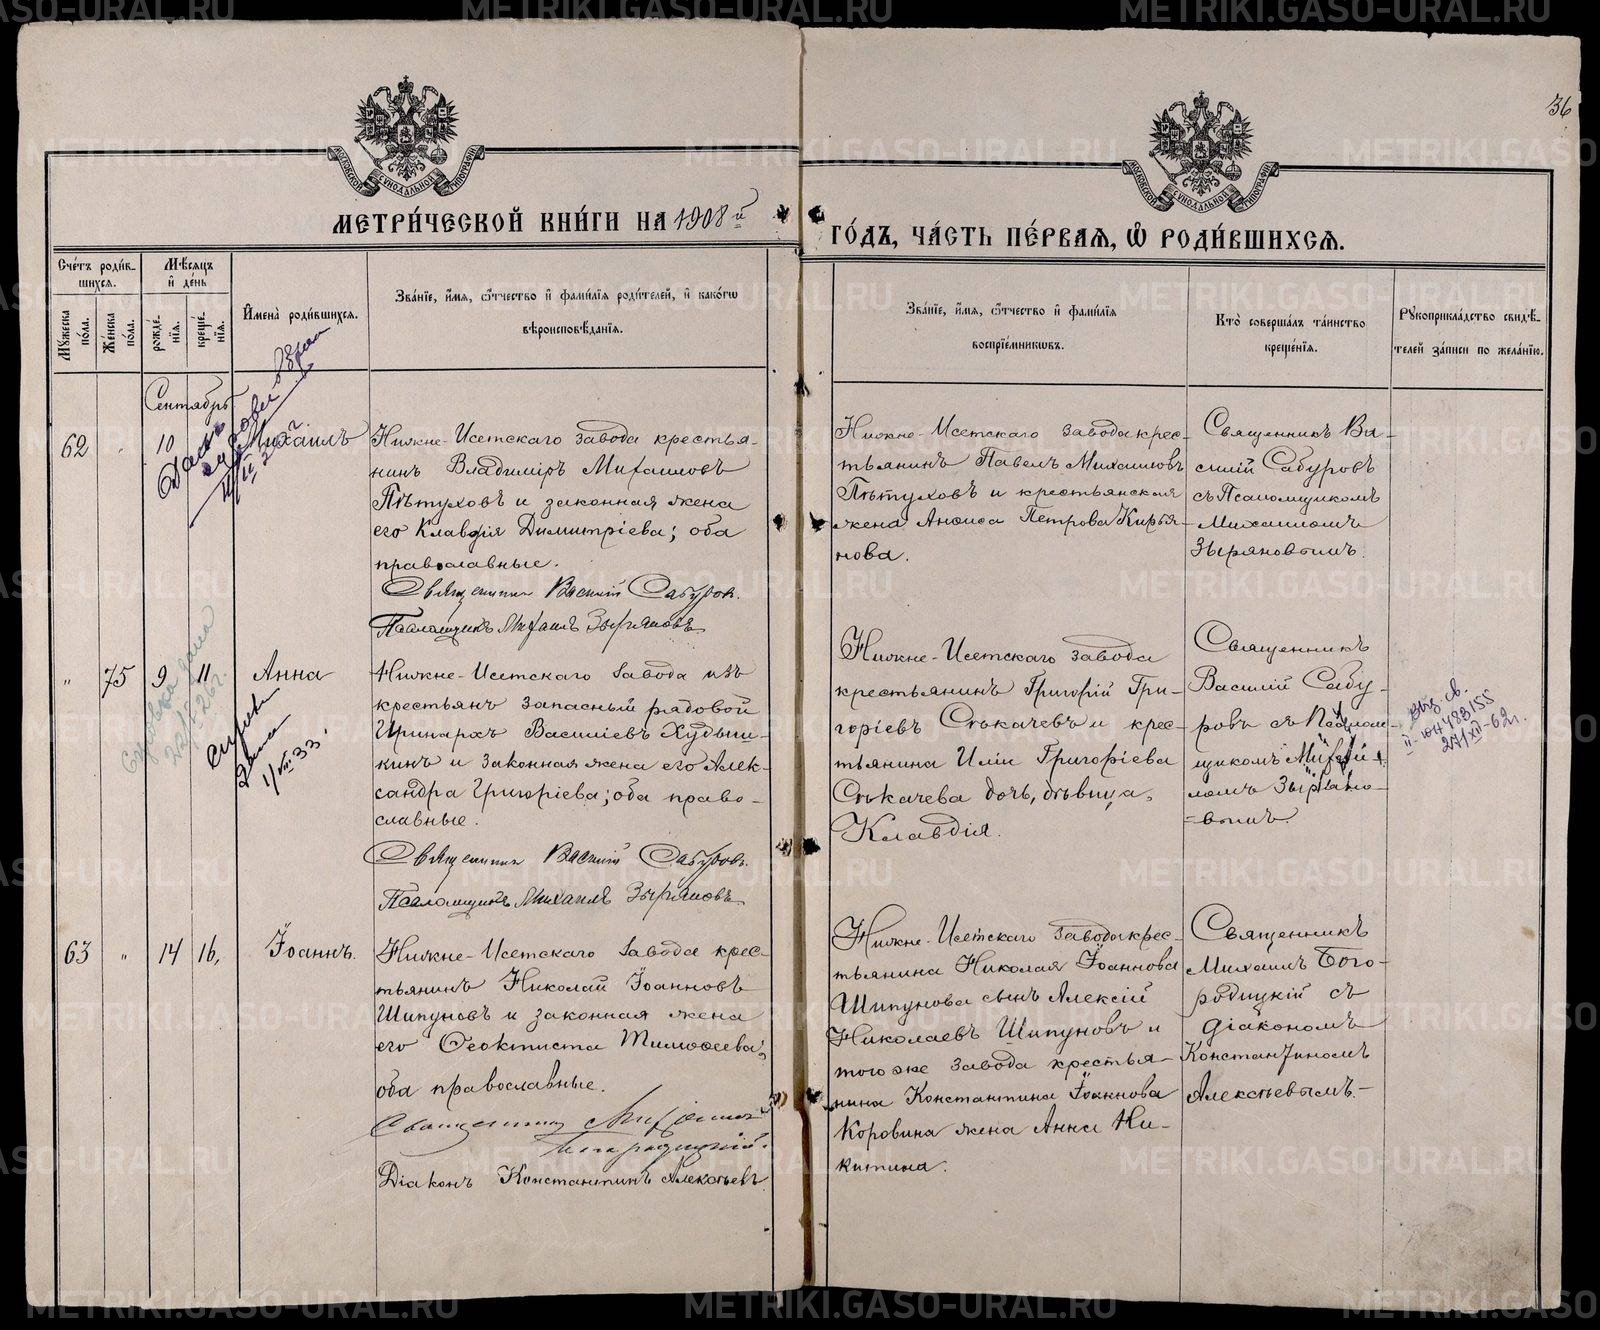 36
МОСКОВСКОЙ СУНОДАЛЬНОЙ ТИПОГРАФІИ
МОСКОВСКОЙ СУНОДАЛЬНОЙ ТИПОГРАФІИ
МЕТРИ́ЧЕСКОЙ КНИ́ГИ НА 1908й
ГО́ДЪ, ЧА́СТЬ ПЕ́РВАЯ, Ѡ РОДИ́ВШИХСЯ.
Сче́тъ роди́в-
шихся.
Мѣ́сяцъ
и҆ де́нь
Мꙋ́жеска по́ла.
Же́нска по́ла.
рожде́нїя.
креще́нїя.
И҆мена̀ роди́вшихся.
Зва́нїе, и҆́мя, ѻ҆́тчество и҆ фами́лїя роди́телей, и҆ како́гѡ
вѣроисповѣ́данїя.
Зва́нїе, и҆́мя, ѻ҆́тчество и҆ фами́лїя
воспрїе́мникѡвъ.
Кто̀ соверша́лъ та́инство
креще́нїя.
Рꙋкоприкла́дство свидѣ́-
телей за́писи по жела́нїю.
Сентябрь
62 " 10 Михаилъ
Нижне-Исетскаго завода крестья-
нинъ Владиміръ Михаиловъ
Пѣтуховъ и законная жена
его Клавдія Димитріева; оба
православные.
Священникъ Василій Сабуровъ.
Псаломщикъ Михаилъ Зыряновъ
Нижне-Исетскаго завода крес-
тьянинъ Павелъ Михаиловъ
Пѣтуховъ и крестьянская
жена Анѳиса Петрова Кирья-
нова.
Священникъ Ва-
силій Сабуровъ
съ Псаломщикомъ
Михаиломъ
Зыряновымъ.
" 75 9 11 Анна
1/VIII 33.
Нижне-Исетскаго завода изъ
крестьянъ запасный рядовой
Иринархъ Василіевъ Худыш-
кинъ и законная жена его Алек-
сандра Григоріева; оба право-
славные.
Священникъ Василій Сабуровъ.
Псаломщикъ Михаилъ Зыряновъ
Нижне-Исетскаго завода
крестьянинъ Григорій Гри-
горіевъ Сѣкачевъ и крес-
тьянина Иліи Григоріева
Сѣкачева дочь, дѣвица,
Клавдія.
Священникъ
Василій Сабу-
ровъ съ Псалом-
щикомъ Михаи-
ломъ Зыряно-
=вымъ.
27/XII-62г.
63 " 14 16, Іоаннъ.
Нижне-Исетскаго завода крес-
тьянинъ Николай Іоанновъ
Шипуновъ и законная жена
его Ѳеоктиста Тимоѳеева;
оба православные.
Священникъ Михаилъ
Богородицкій.
Діаконъ Константинъ Алексѣевъ
Нижне-Исетскаго завода крес-
тьянина Николая Іоаннова
Шипунова сынъ Алексій
Николаевъ Шипуновъ и
того же завода крестья-
нина Константина Іоаннова
Коровина жена Анна Ни-
китина.
Священникъ
Михаилъ Бого-
родицкій съ
діакономъ
Константиномъ
Алексѣевымъ.-
METRIKI.GASO-URAL.RU